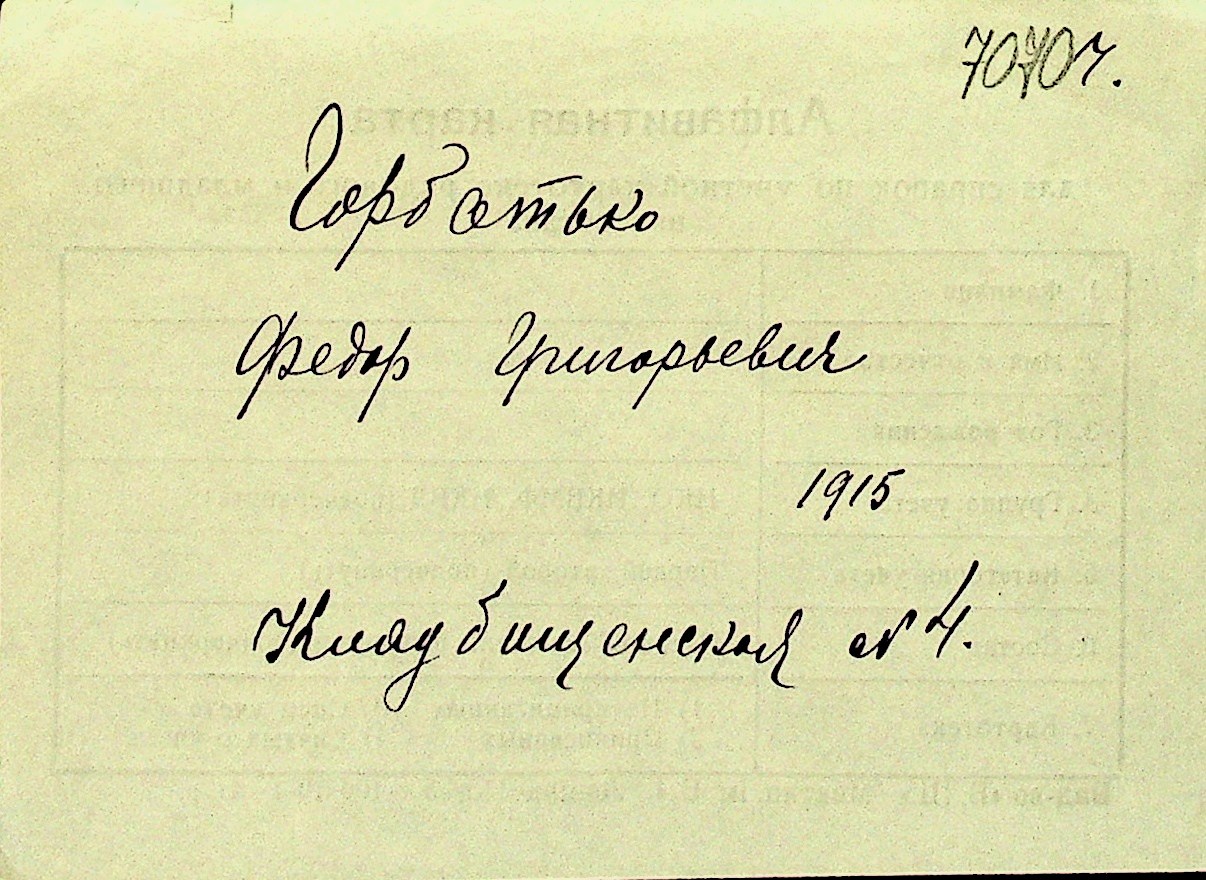 7070ч.
Горбатько
Федор Григорьевич
1915
Кладбищенская № 4.